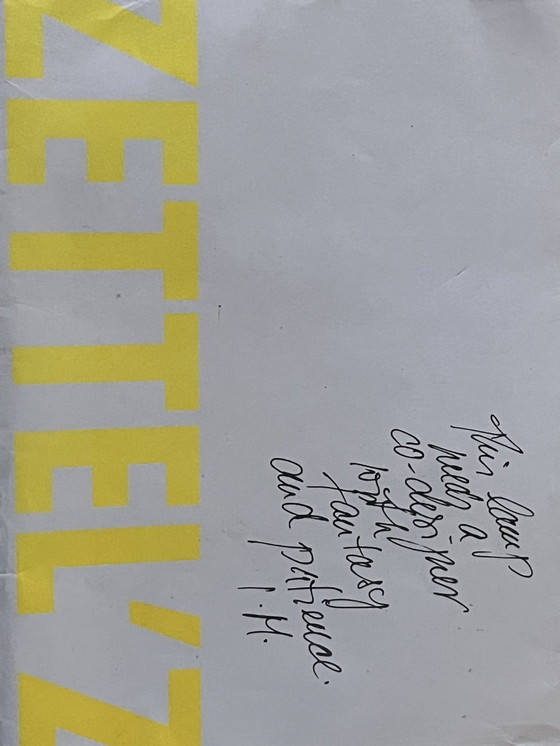 ZETTEL'Z
this lamp
needs a
co-designer
with
fantasy
and patience.
I.M.